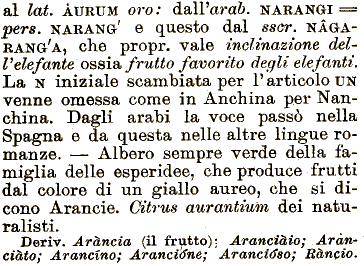 al lat. ÀURUM oro: dall'arab. NARANGI =
pers. NARANG' e questo dal sscr. NÂGA-
RANG'A, che propr. vale inclinazione del-
l'elefante ossia frutto favorito degli elefanti.
La N iniziale scambiata per l'articolo UN
venne omessa come in Anchina per Nan-
china. Dagli arabi la voce passò nella
Spagna e da questa nelle altre lingue ro-
manze. — Albero sempre verde della fa-
miglia delle esperidee, che produce frutti
dal colore di un giallo aureo, che si di-
cono Arancie. Citrus aurantium dei natu-
ralisti.
Deriv. Arància (il frutto); Aranciàio; Aran-
ciàto; Arancìno; Arancióne; Arancióso; Ràncio.